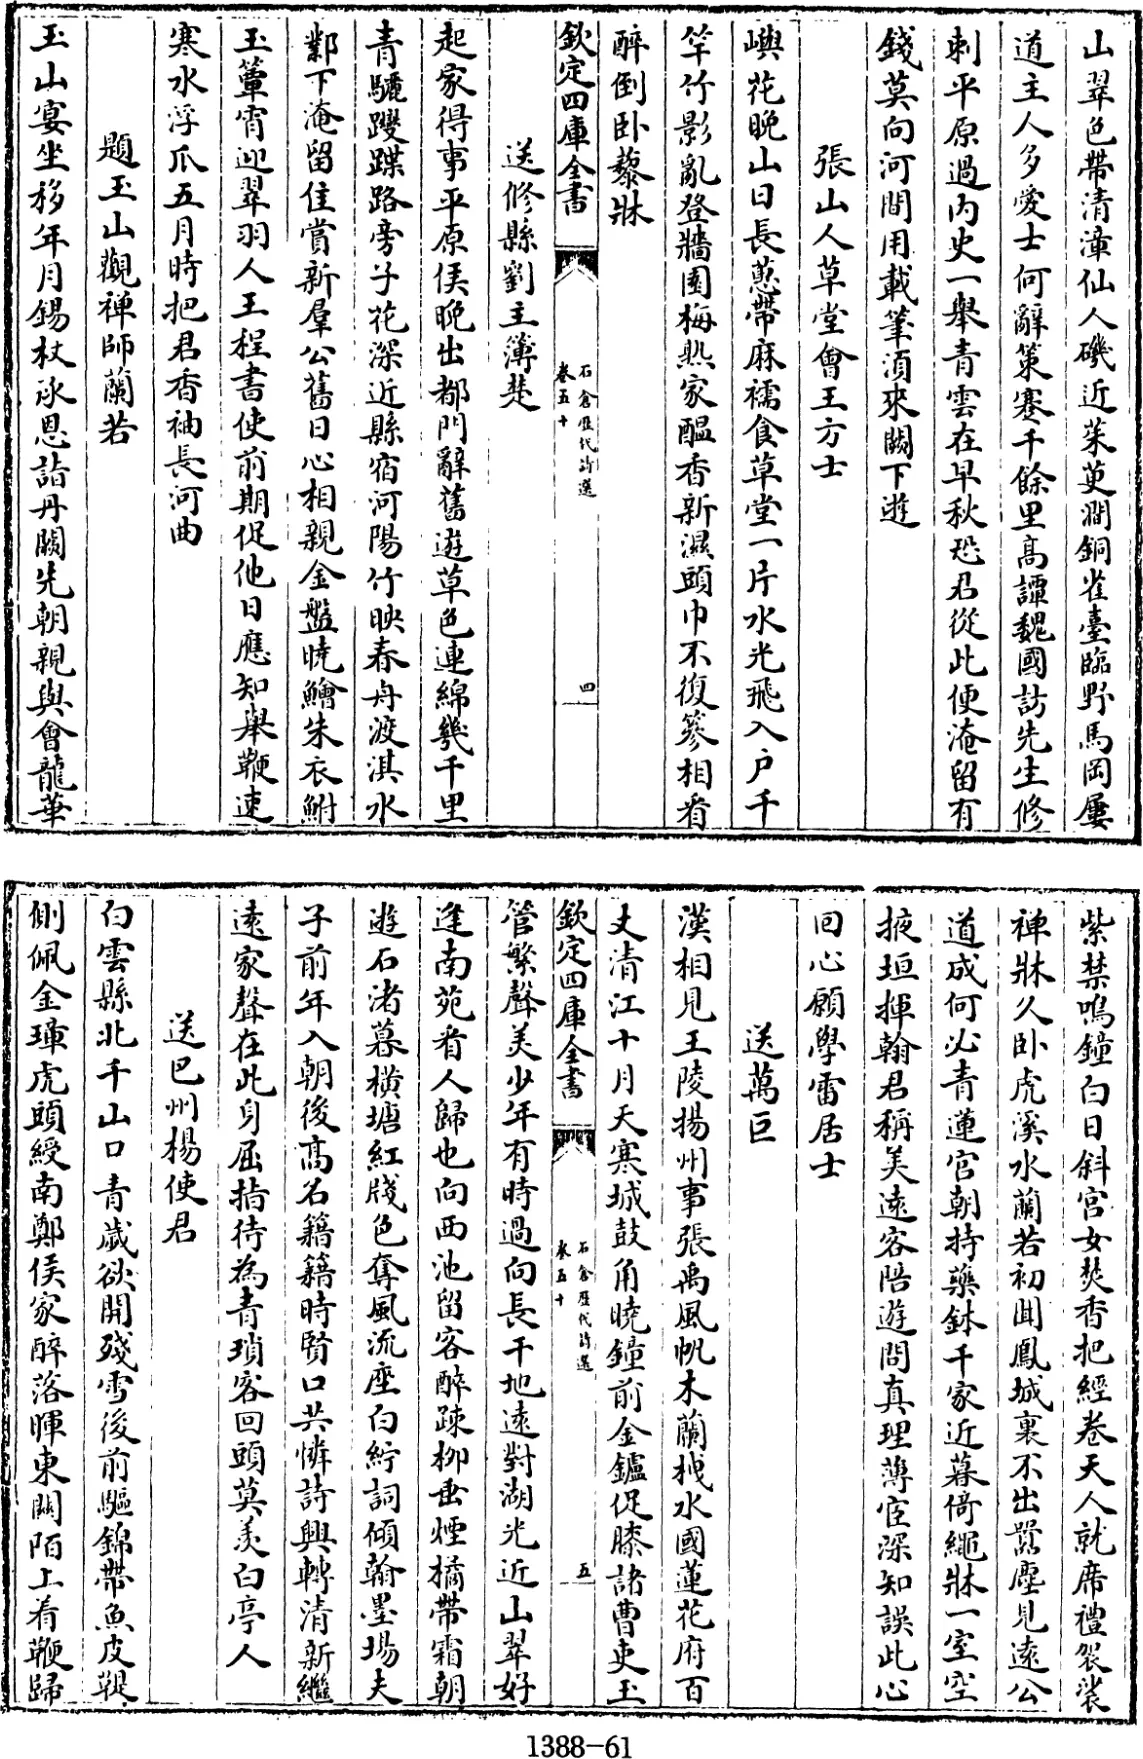 山翠色帶清漳仙人磯近茱萸澗銅雀臺臨野馬岡屢
道主人多愛士何辭策蹇千餘里高譚魏國訪先生修
刺平原過内史一舉青雲在早秋恐君從此便淹留有
錢莫向河間用載筆須來闕下遊
張山人草堂會王方士
嶼花晚山日長蕙帶麻襦食草堂一片水光飛入户千
竿竹影亂登牆園梅熟家醖香新濕頭巾不復篸相看
醉倒卧藜牀
欽定四庫全書
石倉歷代詩選
卷五十
四
送修縣劉主簿楚
起家得事平原侯晚出都門辭舊遊草色連綿幾千里
青驪躞蹀路旁子花深近縣宿河陽竹映春舟渡淇水
鄴下淹留佳賞新羣公舊日心相親金盤曉鱠朱衣鮒
玉簟宵迎翠羽人王程書使前期促他日應知舉鞭速
寒水浮瓜五月時把君香袖長河曲
題玉山觀禪師蘭若
玉山宴坐移年月錫杖承恩詣丹闕先朝親與會龍華
紫禁鳴鐘白日斜宫女焚香把經卷天人就席禮袈裟
禪牀久卧虎溪水蘭若初開鳳城裏不出嚣塵見遠公
道成何必青蓮宫朝持藥鉢千家近暮倚繩牀一室空
掖垣揮翰君稱美遠客陪遊問真理薄宦深知誤此心
回心願學雷居士
送萬巨
漢相見王陵揚州事張禹風帆木蘭檝水國蓮花府百
丈清江十月天寒城鼓角曉鐘前金鑪促膝諸曹吏玉
欽定四庫全書
石倉歷代詩選
卷五十
五
管繁聲美少年有時過向長干地遠對湖光近山翠好
逢南苑看人歸也向西池留客醉疎柳垂煙橘帶霜朝
遊石渚暮横塘紅牋色奪風流座白紵詞傾翰墨場夫
子前年入朝後高名籍籍時賢口共憐詩興轉清新繼
遠家聲在此身屈指待為青瑣客回頭莫羡白亭人
送巴州楊使君
白雲縣北千山口青歲欲開殘雪後前驅錦帶魚皮鞮
側佩金璋虎頭綬南鄭侯家醉落暉東關陌上看鞭歸
1388-61